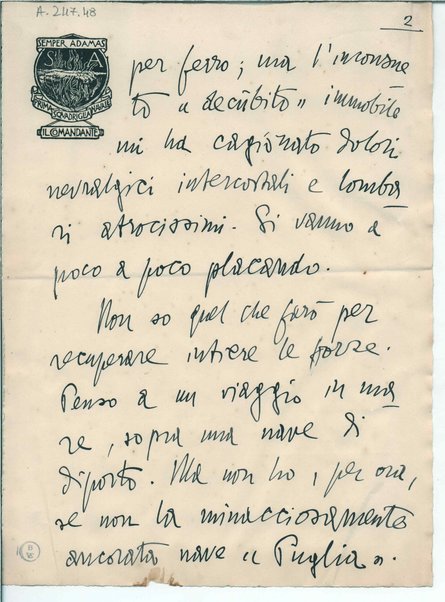 A. 247.48
2
SEMPER ADAMAS
S A
PRIMA SQVADRIGLIA NAVALE
IL COMANDANTE
per ferro; ma l'inconsue
to "decùbito" immobile
mi ha cagionato dolori
nevralgici intercostali e lomba
ri atrocissimi. Si vanno a
poco a poco placando.
Non so quel che farò per
recuperare intiere le forze.
Penso a un viaggio in ma
re, sopra una nave di
diporto. Ma non ho, per ora,
se non la minacciosamente
ancorata nave "Puglia".